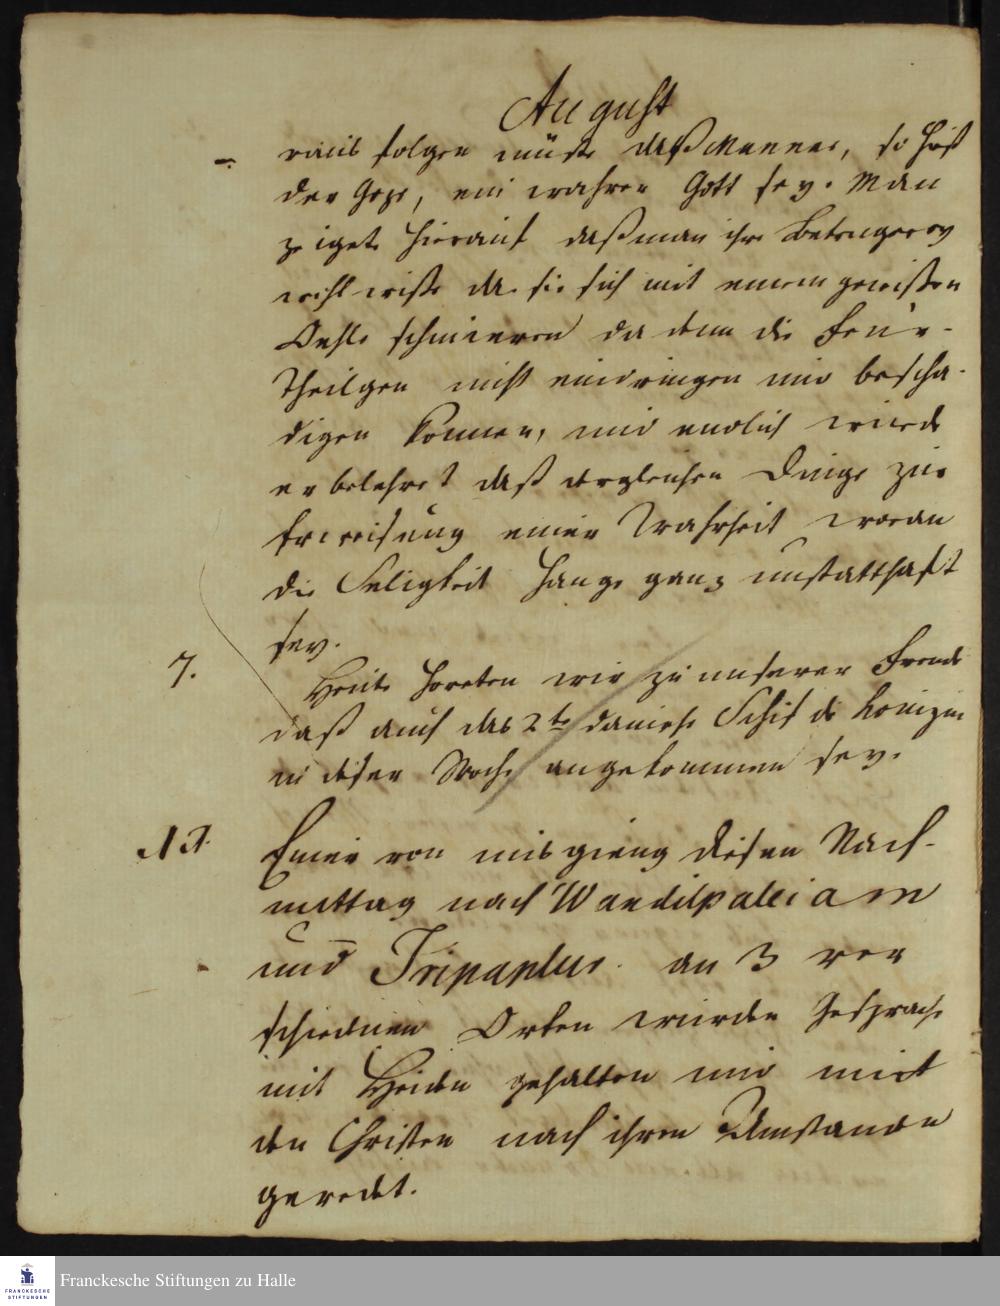 August
raus folgen müste daß Mannar, so heist
der Göze, ein wahrer Gott sey. Man
zeigete hierauf daß man ihre Betrugerey
wohl wiste da sie sich mit einem gewißen
Oehle schmieren da denn die Feuer-
Theilgen nicht eindringen und bescha-
digen können, und endlich wurde
er belehret daß dergleichen Dinge zur
Erweisung einer Wahrheit woran
die Seligkeit hange ganz unstatthaft
sey.
7. Heute horeten wir zu unserer Freude
daß auch das 2te danische Schif die Konigin
in dieser Woche angekommen sey.
Einer von uns gieng diesen Nach-
mittag nach Wandilpaleiam
und Tripapleur. an 3 ver
schiedenen Orten wurden Gesprache
mit Heiden gehalten und mit
den Christen nach ihren Umstanden
geredet.
Franckesche Stiftungen zu Halle
FRANCKESCHE
STIFTUNGEN